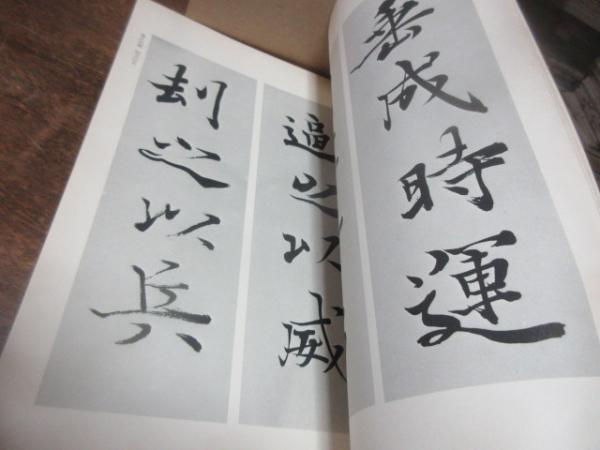 垂成時運
逼之以威
刧之以兵